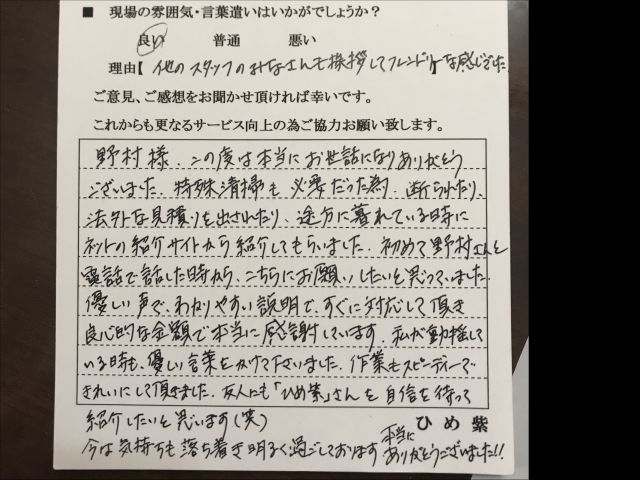 ■ 現場の雰囲気・言葉遣いはいかがでしょうか？
良い 普通 悪い
理由【他のスタッフのみなさんも挨拶してフレンドリーな感じでした。
ご意見、ご感想をお聞かせ頂ければ幸いです。
これからも更なるサービス向上の為ご協力お願い致します。
野村様、この度は本当にお世話になりありがとう
ございました。特殊清掃も必要だった為、断られたり、
法外な見積りを出されたり、途方に暮れている時に
ネットの紹介サイトから紹介してもらいました。初めて野村さんと
電話で話した時から、こちらにお願いしたいと思っていました。
優しい声で、わかりやすい説明で、すぐに対応して頂き
良心的な金額で本当に感謝しています。私が動揺して
いる時も、優しい言葉をかけて下さいました。作業もスピーディーで
きれいにして頂きました。友人にも「ひめ紫」さんを自信を待って
紹介したいと思います(笑)
ひめ紫
今は気持ちも落ち着き明るく過ごしております
本当に
ありがとうございました!!